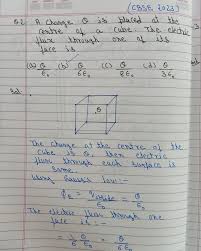 (CBSE 2023)
Q.2 A charge Q is placed at the
centre of a cube. The electric
flux through one of its
face is
(a) Q/ε₀ (b) Q/6ε₀ (c) Q/8ε₀ (d) Q/3ε₀
Sol.
The charge at the centre of the
cube is Q, then electric
flux through each surface is
same.
Using Gauss's law:-
ϕE = q inside/ε₀ = Q/ε₀
The electric flux through one
face is:-
= 1/6 × Q/ε₀ = Q/6ε₀